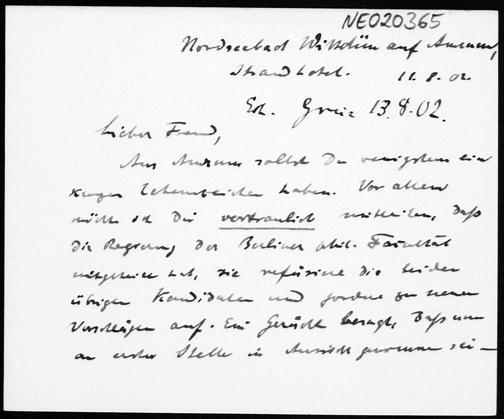 NE020365
Nordseebad Wittdün auf Amrum,
Strandhotel. 11.8.02
Erh. Greiz 13.8.02.
Lieber Freund,
Aus Amrum sollst Du wenigstens ein
kurzes Lebenszeichen haben. Vor allem
möcht ich Dir vertraulich mitteilen, daß
die Regierung der Berliner phil. Facultät
mitgeteilt hat, sie refüsiere die beiden
übrigen Kandidaten und fordere zu neuen
Vorschlägen auf. Ein Gerücht besagt, daß nun
an erster Stelle in Aussicht genommen sei –